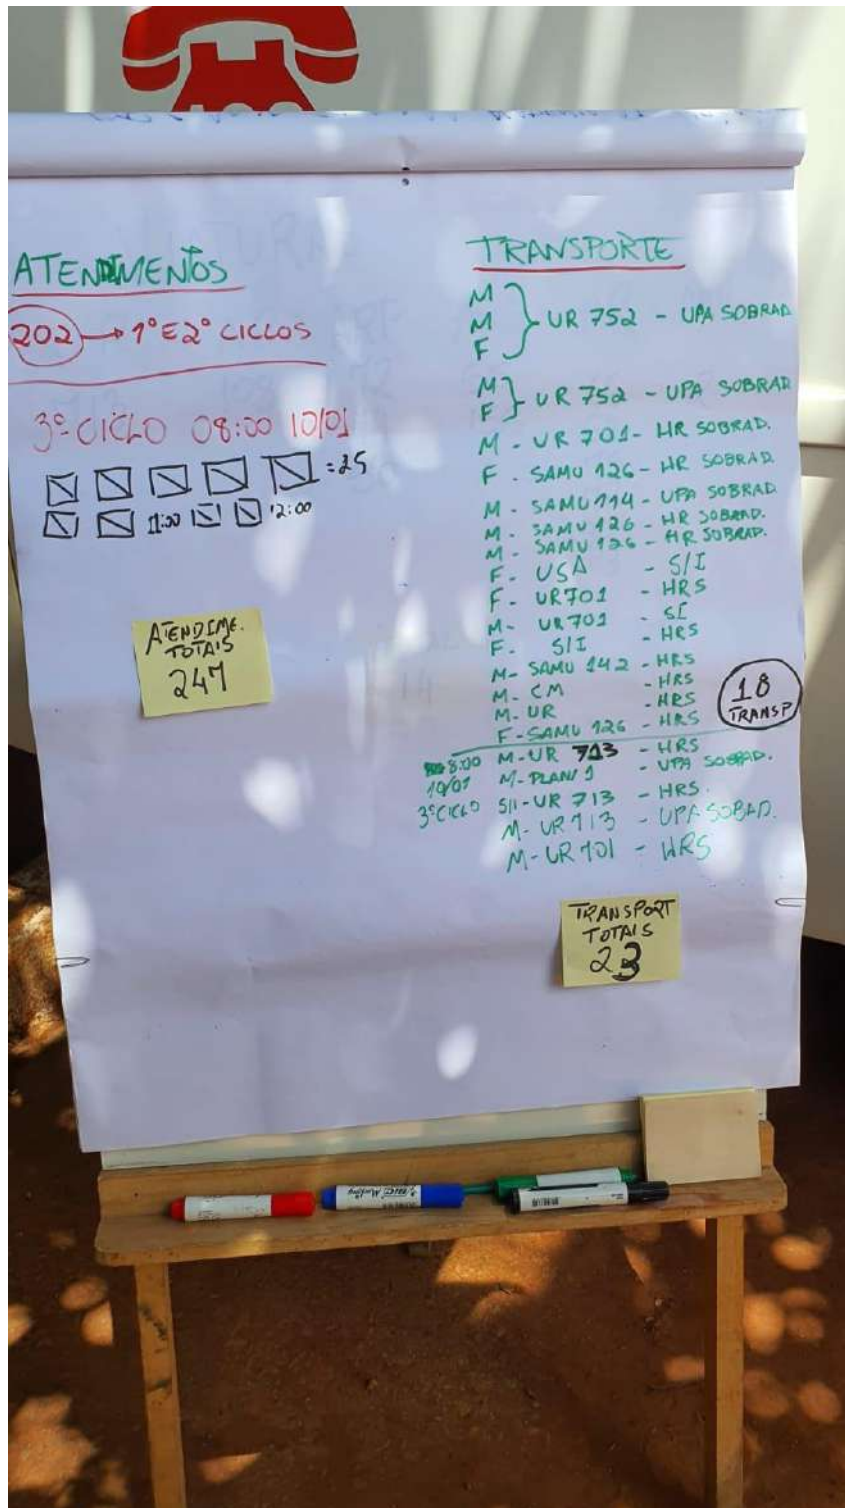 ATENDIMENTOS
202 → 1º E 2º CICLOS
3º CICLO 08:00 10/01
= 25
11:00 12:00
ATENDIME.
TOTAIS
247
TRANSPORTE
M
M
F
UR 752 - UPA SOBRAD
M
F
UR 752 - UPA SOBRAD
M - UR 701 - HR SOBRAD.
F - SAMU 126 - HR SOBRAD.
M - SAMU 114 - UPA SOBRAD
M - SAMU 126 - HR SOBRAD.
M - SAMU 126 - HR SOBRAD.
F - USA - S/I
F - UR701 - HRS
M - UR701 - SI
F. S/I - HRS
M - SAMU 142 - HRS
M - CM - HRS
M - UR - HRS
F - SAMU 126 - HRS
18
TRANSP
8:00 M - UR 713 - HRS
10/01 M - PLANI 1 - UPA SOBRAD.
3º CICLO S/I - UR 713 - HRS.
M - UR 713 - UPA SOBAD.
M - UR 701 - HRS
TRANSPORT
TOTAIS
23